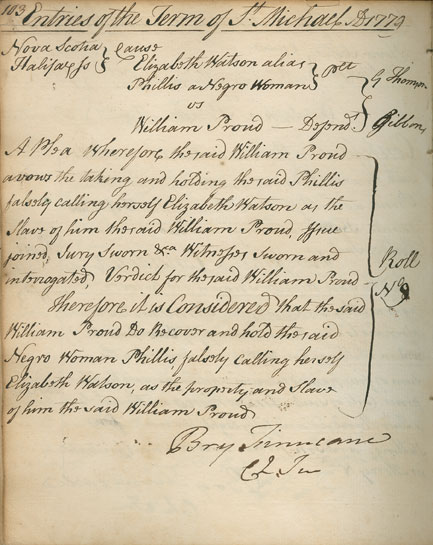 103 Entries of the Term of St. Michael AD 1779
Nova Scotia } Cause
Halifax ss } Elizabeth Watson alias } Plt } G Thomson
Phillis a Negro Woman
vs
William Proud — Defendt. } Gibbons
A Plea Wherefore the said William Proud
avows the taking and holding the said Phillis
falsely calling herself Elizabeth Watson as the
Slave of him the said William Proud, Issue
joined, Jury Sworn &ca Witnesses Sworn and
interrogated, Verdict for the said William Proud
Roll
No. 9
Therefore it is Considered that the said
William Proud Do Recover and hold the said
Negro Woman Phillis falsely calling herself
Elizabeth Watson, as the property and Slave
of him the said William Proud
Bry Finucane